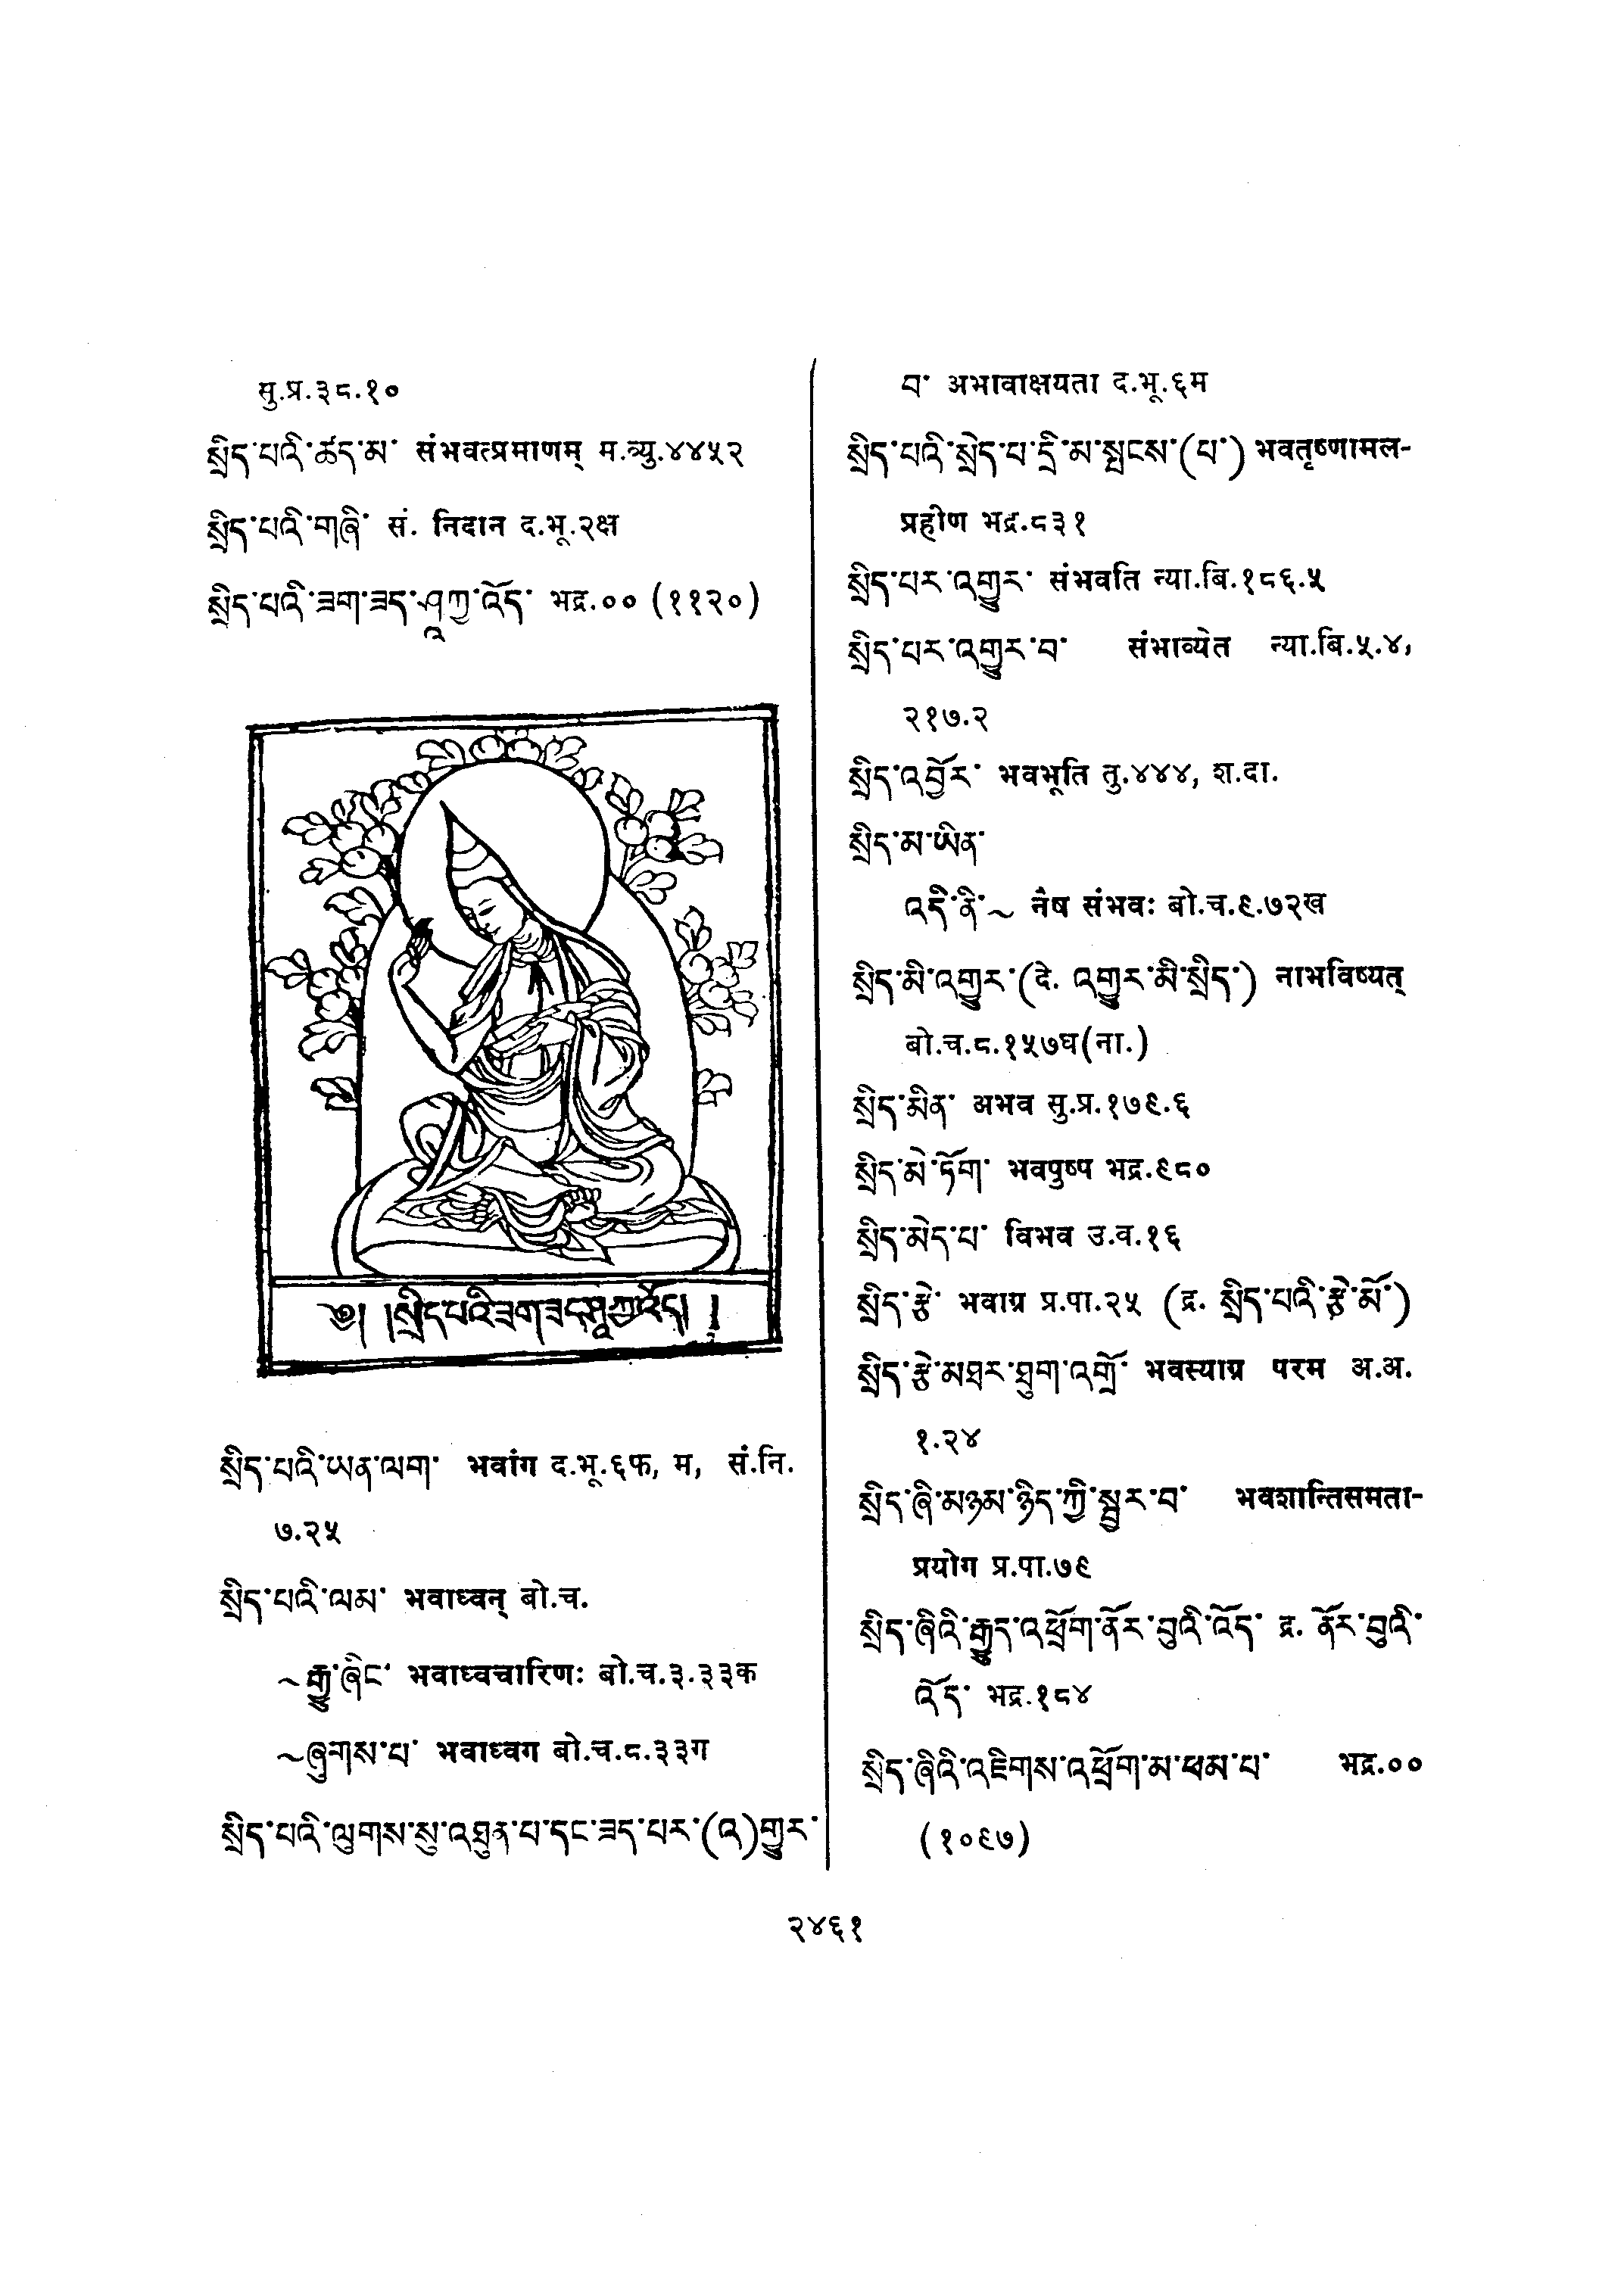 सु.प्र.३८.१०
སྲིད་པའི་ཚད་མ་ संभवत्प्रमाणम् म.व्यु.४४५२
སྲིད་པའི་གཞི་ सं. निदान द.भू.२क्ष
སྲིད་པའི་ཟག་ཟད་ཤཱཀྱ་འོད་ भद्र.०० (११२०)
༄། །སྲིད་པའི་ཟག་ཟད་ཤཱཀྱ་འོད། །
སྲིད་པའི་ཡན་ལག་ भवांग द.भू.६फ, म, सं.नि.
७.२५
སྲིད་པའི་ལམ་ भवाध्वन् बो.च.
~རྒྱུ་ཞིང་ भवाध्वचारिणः बो.च.३.३३क
~ཞུགས་པ་ भवाध्वग बो.च.८.३३ग
སྲིད་པའི་ལུགས་སུ་འཐུན་པ་དང་ཟད་པར་(འ)གྱུར་
བ་ अभावाक्षयता द.भू.६म
སྲིད་པའི་སྲེད་པ་དྲི་མ་སྤངས་(པ་) भवतृष्णामल-
प्रहीण भद्र.८३१
སྲིད་པར་འགྱུར་ संभवति न्या.बि.१८६.५
སྲིད་པར་འགྱུར་བ་ संभाव्येत न्या.बि.५.४,
२१७.२
སྲིད་འབྱོར་ भवभूति तु.४४४, श.दा.
སྲིད་མ་ཡིན་
འདི་ནི་~ नैष संभवः बो.च.९.७२ख
སྲིད་མི་འགྱུར་(दे. འགྱུར་མི་སྲིད་) नाभविष्यत्
बो.च.८.१५७घ(ना.)
སྲིད་མིན་ अभव सु.प्र.१७९.६
སྲིད་མེ་ཏོག་ भवपुष्प भद्र.९८०
སྲིད་མེད་པ་ विभव उ.व.१६
སྲིད་རྩེ་ भवाग्र प्र.पा.२५ (द्र. སྲིད་པའི་རྩེ་མོ་)
སྲིད་རྩེ་མཐར་ཐུག་འགྲོ་ भवस्याग्र परम अ.अ.
१.२४
སྲིད་ཞི་མཉམ་ཉིད་ཀྱི་སྦྱར་བ་ भवशान्तिसमता-
प्रयोग प्र.पा.७९
སྲིད་ཞིའི་རྒྱུད་འཕྲོག་ནོར་བུའི་འོད་ द्र. ནོར་བུའི་
འོད་ भद्र.१८४
སྲིད་ཞིའི་འཇིགས་འཕྲོག་མ་ཕམ་པ་ भद्र.००
(१०९७)
२४६१